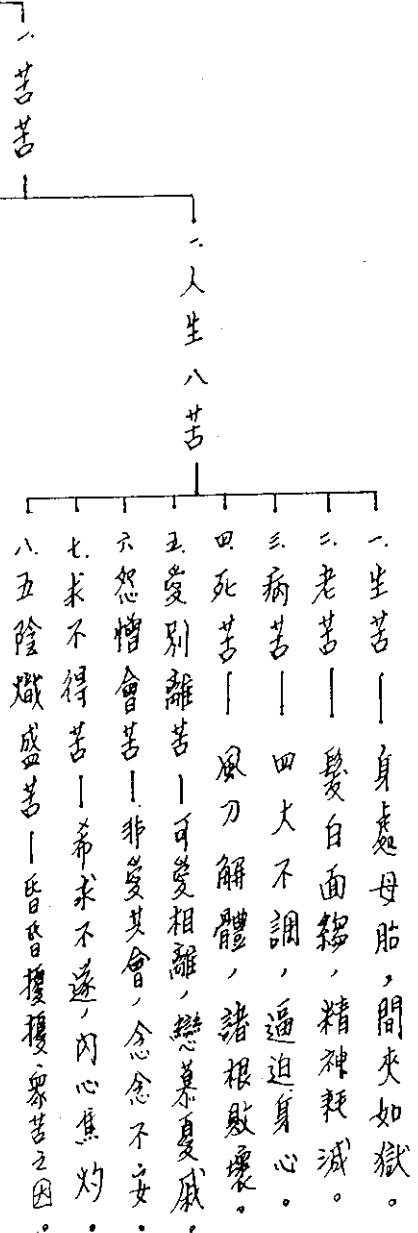 一. 苦苦
一. 人生八苦
一. 生苦—身處母胎，間夾如獄。
二. 老苦—髮白面縐，精神耗減。
三. 病苦—四大不調，逼迫身心。
四. 死苦—風刀解體，諸根敗壞。
五. 愛別離苦—可愛相離，戀慕憂戚。
六. 怨憎會苦—非愛共會，念念不安。
七. 求不得苦—希求不遂，內心焦灼。
八. 五陰熾盛苦—昏昏擾擾眾苦之因。